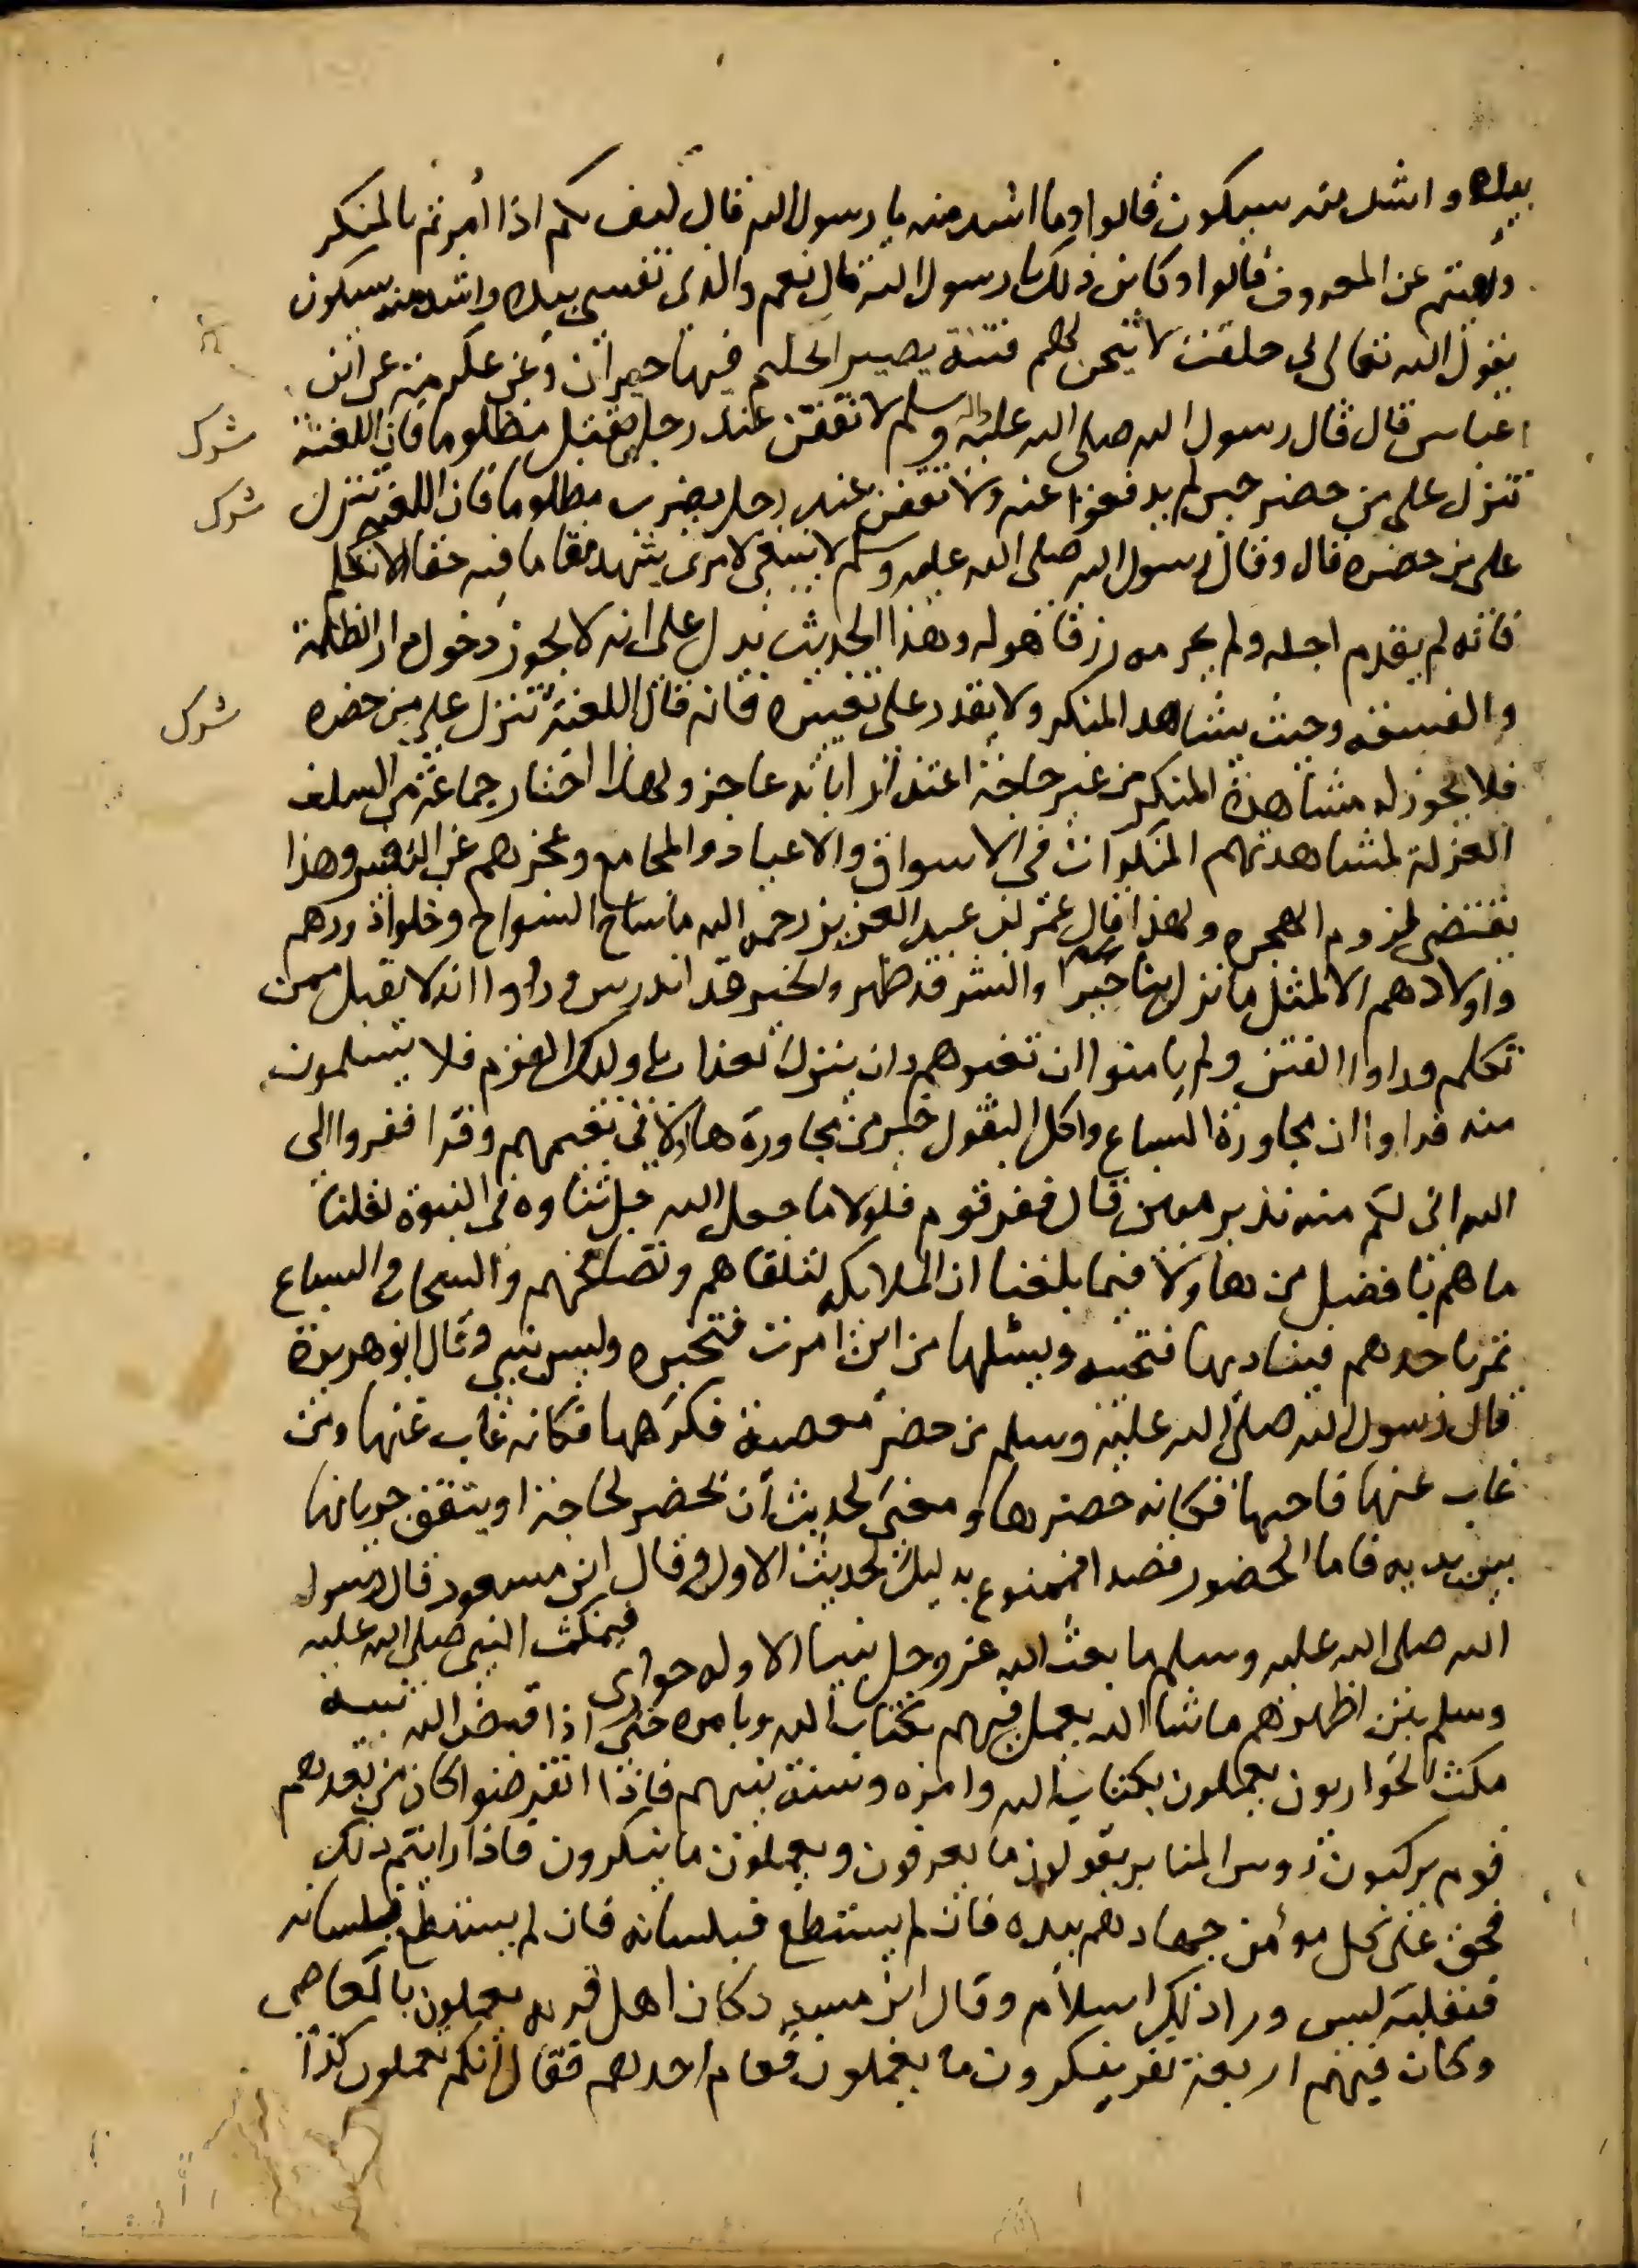 بيده واشد منه سيكون قالوا وما اشد منه يا رسول الله قال كيف بكم اذا امرتم بالمنكر
ونهيتم عن المعروف قالوا وكاين ذلك يا رسول الله قال نعم والذى نفسى بيده واشد منه سيكون
يقول الله تعالى بى حلفت لاتيحن لهم فتنة يصير الحليم فيها حيران وعن عكرمة عن ابن
عباس قال قال رسول الله صلى الله عليه واله وسلم لا تقفن عند رجل يقتل مظلوما فان اللعنة
شرك
تنزل على من حضر حين لم يدفعوا عنه ولا تقفن عند رجل يضرب مظلوما فان اللعنة تنزل
شرك
على من حضره قال وقال رسول الله صلى الله عليه وسلم لا ينبغى لامرئ يشهد مقاما فيه حقا الا تكلم
فانه لم يقدم اجله ولم يحرمه رزقا هو له وهذا الحديث يدل على انه لا يجوز دخول دار الظلمة
والفسقه وحيث يشاهد المنكر ولا يقدر على تغييره فانه قال اللعنة تنزل على من حضره
شرك
فلا يجوز له مشاهدة المنكر من غير حاجة اعتذارا بانه عاجز ولهذا اختار جماعة من السلف
العزلة لمشاهدتهم المنكرات فى الاسواق والاعياد والمجامع وعجزهم عن التغيير وهذا
يقتضى لزوم الهجره ولهذا قال عمر بن عبد العزيز رحمه الله ما ساح السواح وخلوا دورهم
واولادهم الا لمثل ما نزل بنا حين راوا والشر قد ظهر والخير قد اندرس وراوا انه لا يقبل ممن
تكلم وراوا الفتن ولم يامنوا ان تعتريهم وان ينزل العذاب باولئك القوم فلا يسلمون
منه فراوا ان مجاورة السباع واكل البقول خير من مجاورة هاولاء فى نعيمهم وقرا ففروا الى
الله انى لكم منه نذير مبين قال ففر قوم فلولا ما جعل الله جل ثناوه فى النبوة لقلنا
ما هم بافضل من هاولاء فيما بلغنا ان الملايكه لتلقاهم وتصافحهم والسحاب والسباع
تمر باحدهم فيناديها فتجيبه ويسئلها من اين امرت فتخبره وليس بنبى وقال ابو هريرة
قال رسول الله صلى الله عليه وسلم من حضر معصية فكرهها فكانه غاب عنها ومن
غاب عنها فاحبها فكانه حضرها ومعنى الحديث ان يحضر لحاجة او يتفق جريانها
بين يديه فاما الحضور قصدا فممنوع بدليل الحديث الاول وقال ابن مسعود قال رسول
الله صلى الله عليه وسلم ما بعث الله عز وجل نبيا الا وله حوارى فيمكث النبى صلى الله عليه
وسلم بين اظهرهم ما شا الله يعمل فيهم بكتاب الله وبامره حتى اذا قبض الله نبيه
مكث الحواريون يعملون بكتاب الله وامره وسنة نبيهم فاذا انقرضوا كان من بعدهم
قوم يركبون رءوس المنابر يقولون ما يعرفون ويعملون ما ينكرون فاذا رايتم ذلك
فحق على كل مومن جهادهم بيده فان لم يستطع فبلسانه فان لم يستطع بلسانه
فبقلبه ليس ورا ذلك اسلام وقال ابن مسعود كان اهل قريه يعملون بالمعاصى
وكان فيهم اربعة نفر ينكرون ما يعملون فقام احدهم فقال انكم تعملون كذا